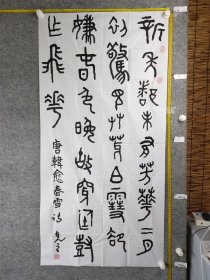 新年都未有芳華二月
初驚見草芽白雪卻
嫌春色晚故穿庭樹
作飛花
唐韓愈春雪詩